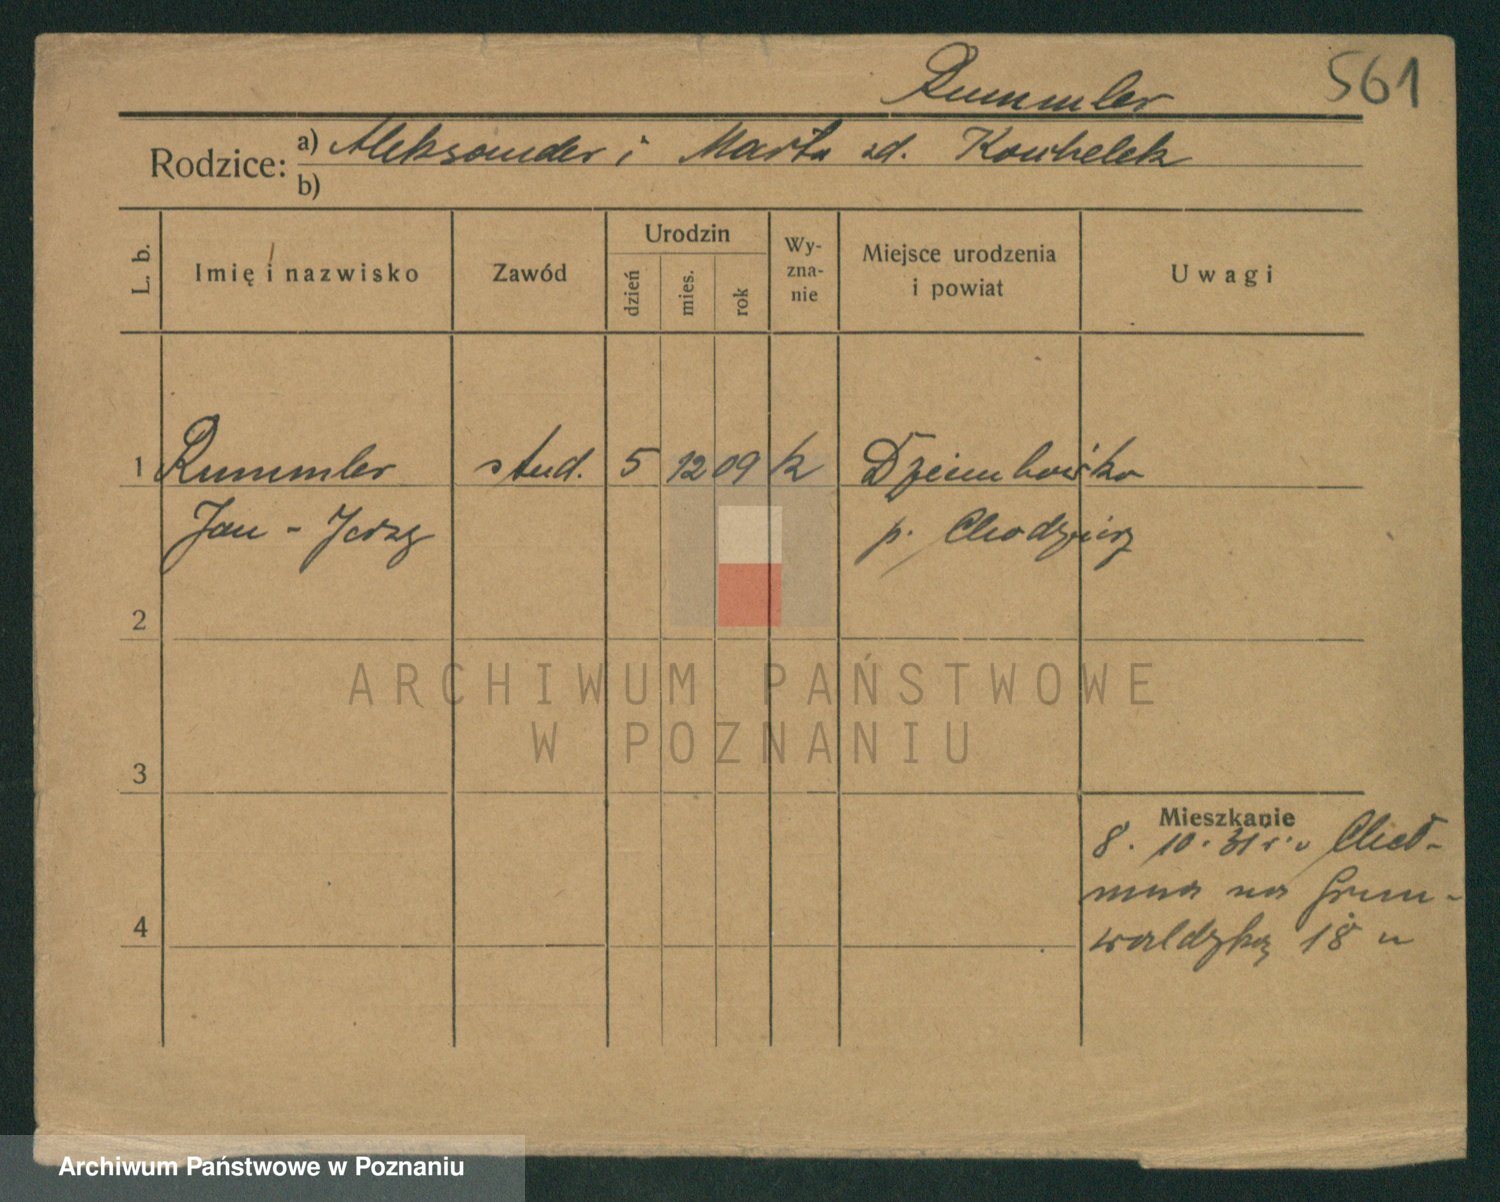 561
Rummler
Rodzice: a) Aleksander i Marta zd. Kowhelek
b)
L. b. Imię i nazwisko Zawód Urodzin dzień mies. rok Wy-zna-nie Miejsce urodzenia i powiat Uwagi
1 Rummler stud. 5 12 09 k Dziembówko
Jan - Jerzy p. Chodzież
2
ARCHIWUM PAŃSTWOWE
W POZNANIU
3
Mieszkanie
8. 10. 31 r. z Cheł-
mna na Grun-
4 waldzką 18
Archiwum Państwowe w Poznaniu